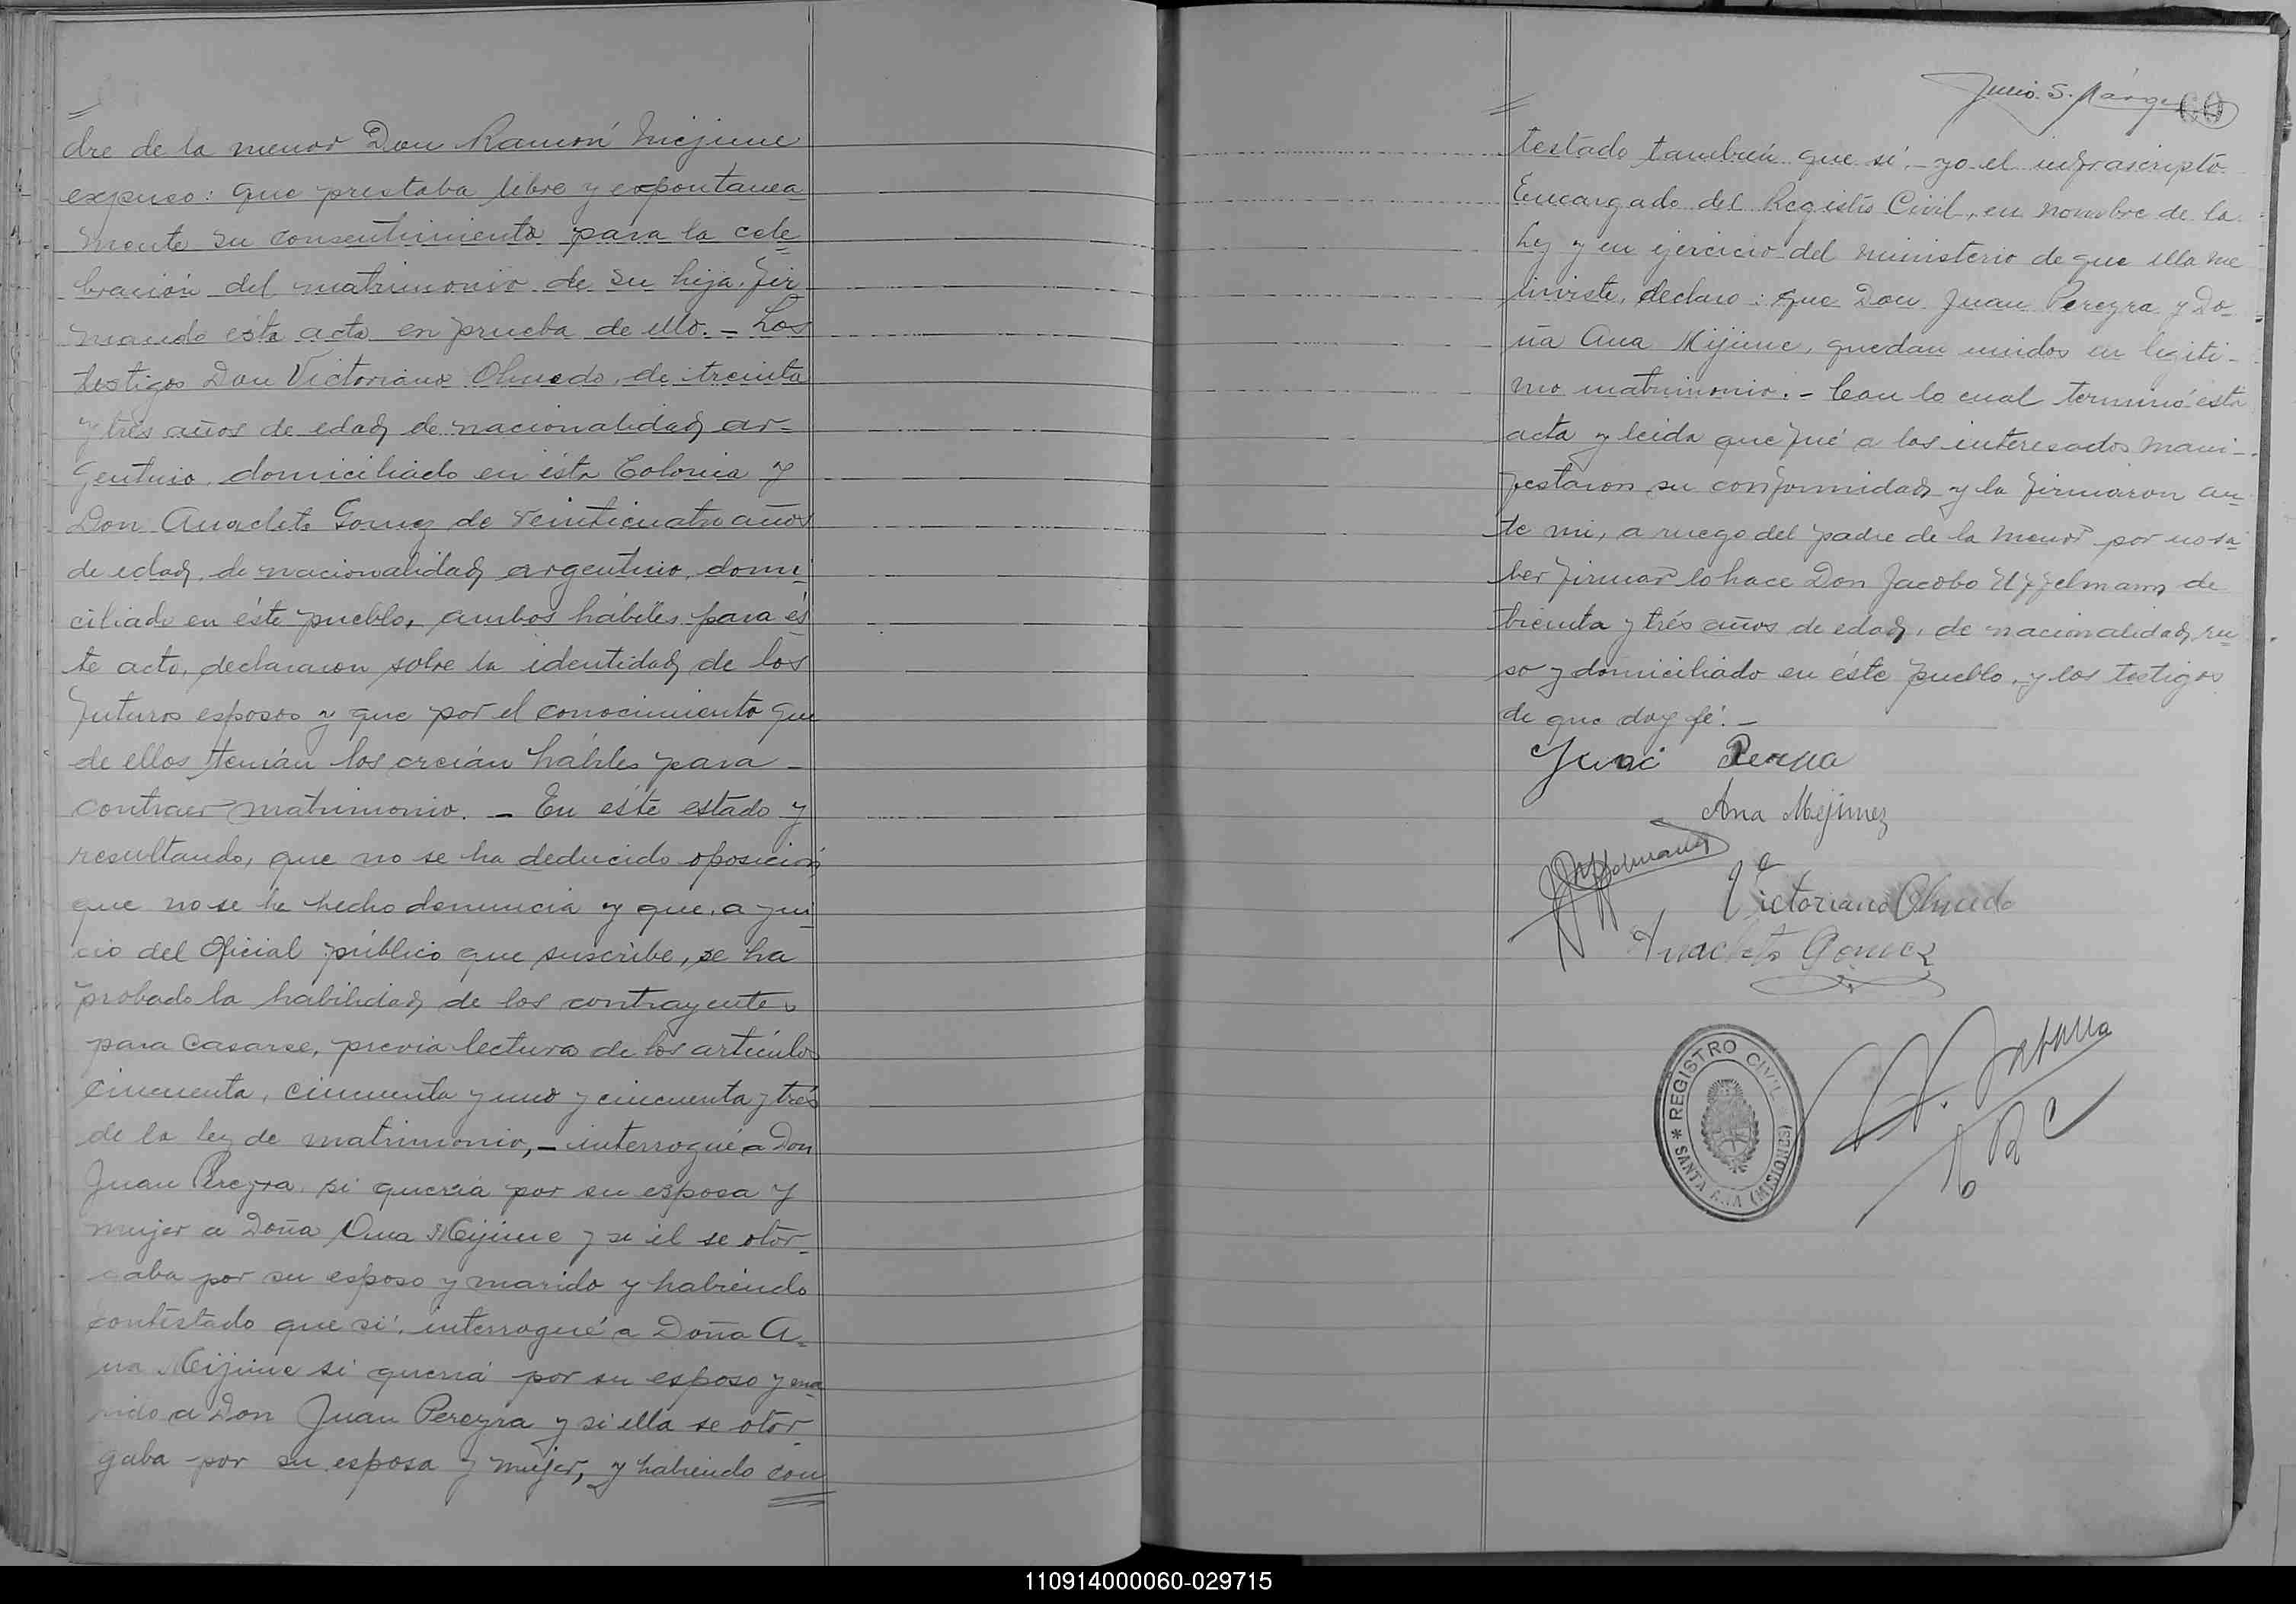 dre de la menor Don Ramón Mejime
expuso: que prestaba libre y expontanea
mente su consentimiento para la cele
bración del matrimonio de su hija, fir
mando ésta acta en prueba de ello. - Los
testigos Don Victoriano Olmedo, de treinta
y trés años de edad, de nacionalidad ar-
gentino, domiciliado en ésta Colonia y
Don Anacleto Gomez de veinticuatro años
de edad, de nacionalidad argentino, domi-
ciliado en éste pueblo, ambos hábiles para és
te acto, declararon sobre la identidad de los
futuros esposos y que por el conocimiento que
de ellos tenián los creián hábiles para -
contraer matrimonio. - En éste estado y
resultando, que no se ha deducido oposición
que no se ha hecho denuncia y que, a jui
cio del Oficial público que suscribe, se ha
probado la habilidad de los contrayentes
para casarse, previa lectura de los artículos
cincuenta, cincuenta y uno y cincuenta y trés
de la ley de matrimonio, - interrogué a Don
Juan Pereyra si queria por su esposa y
mujer a Doña Ana Mejime y si él se otor-
gaba por su esposo y marido y habiendo
contestado que si, interrogué a Doña A-
na Mejime si queria por su esposo y ma
rido a Don Juan Pereyra y si ella se otor
gaba por su esposa y mujer, y habiendo con
60
testado también que si, - yo el infrascripto
Encargado del Registro Civil, en nombre de la
Ley y en ejercicio del ministerio de que ella me
inviste, declaro: que Don Juan Pereyra y Do-
ña Ana Mijime, quedan unidos en legiti-
mo matrimonio. - Con lo cual terminó ésta
acta y leida que fué a los interesados mani-
festaron su conformidad y la firmaron an
te mi, a ruego del padre de la menor por no sa
ber firmar lo hace Don Jacobo Uffelmann de
treinta y trés años de edad, de nacionalidad ru
so y domiciliado en éste pueblo, y los testigos
de que doy fé. -
Ana Mejimez
Victoriano Olmedo
Anacleto Gomez
REGISTRO CIVIL
* SANTA ANA (MISIONES)
110914000060-029715